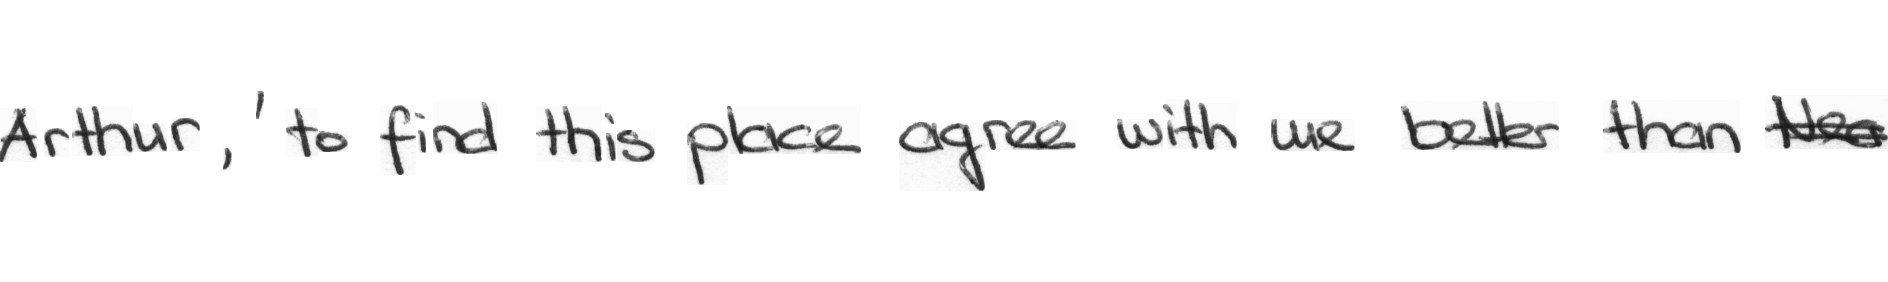 Arthur, ' to find this place agree with me better than